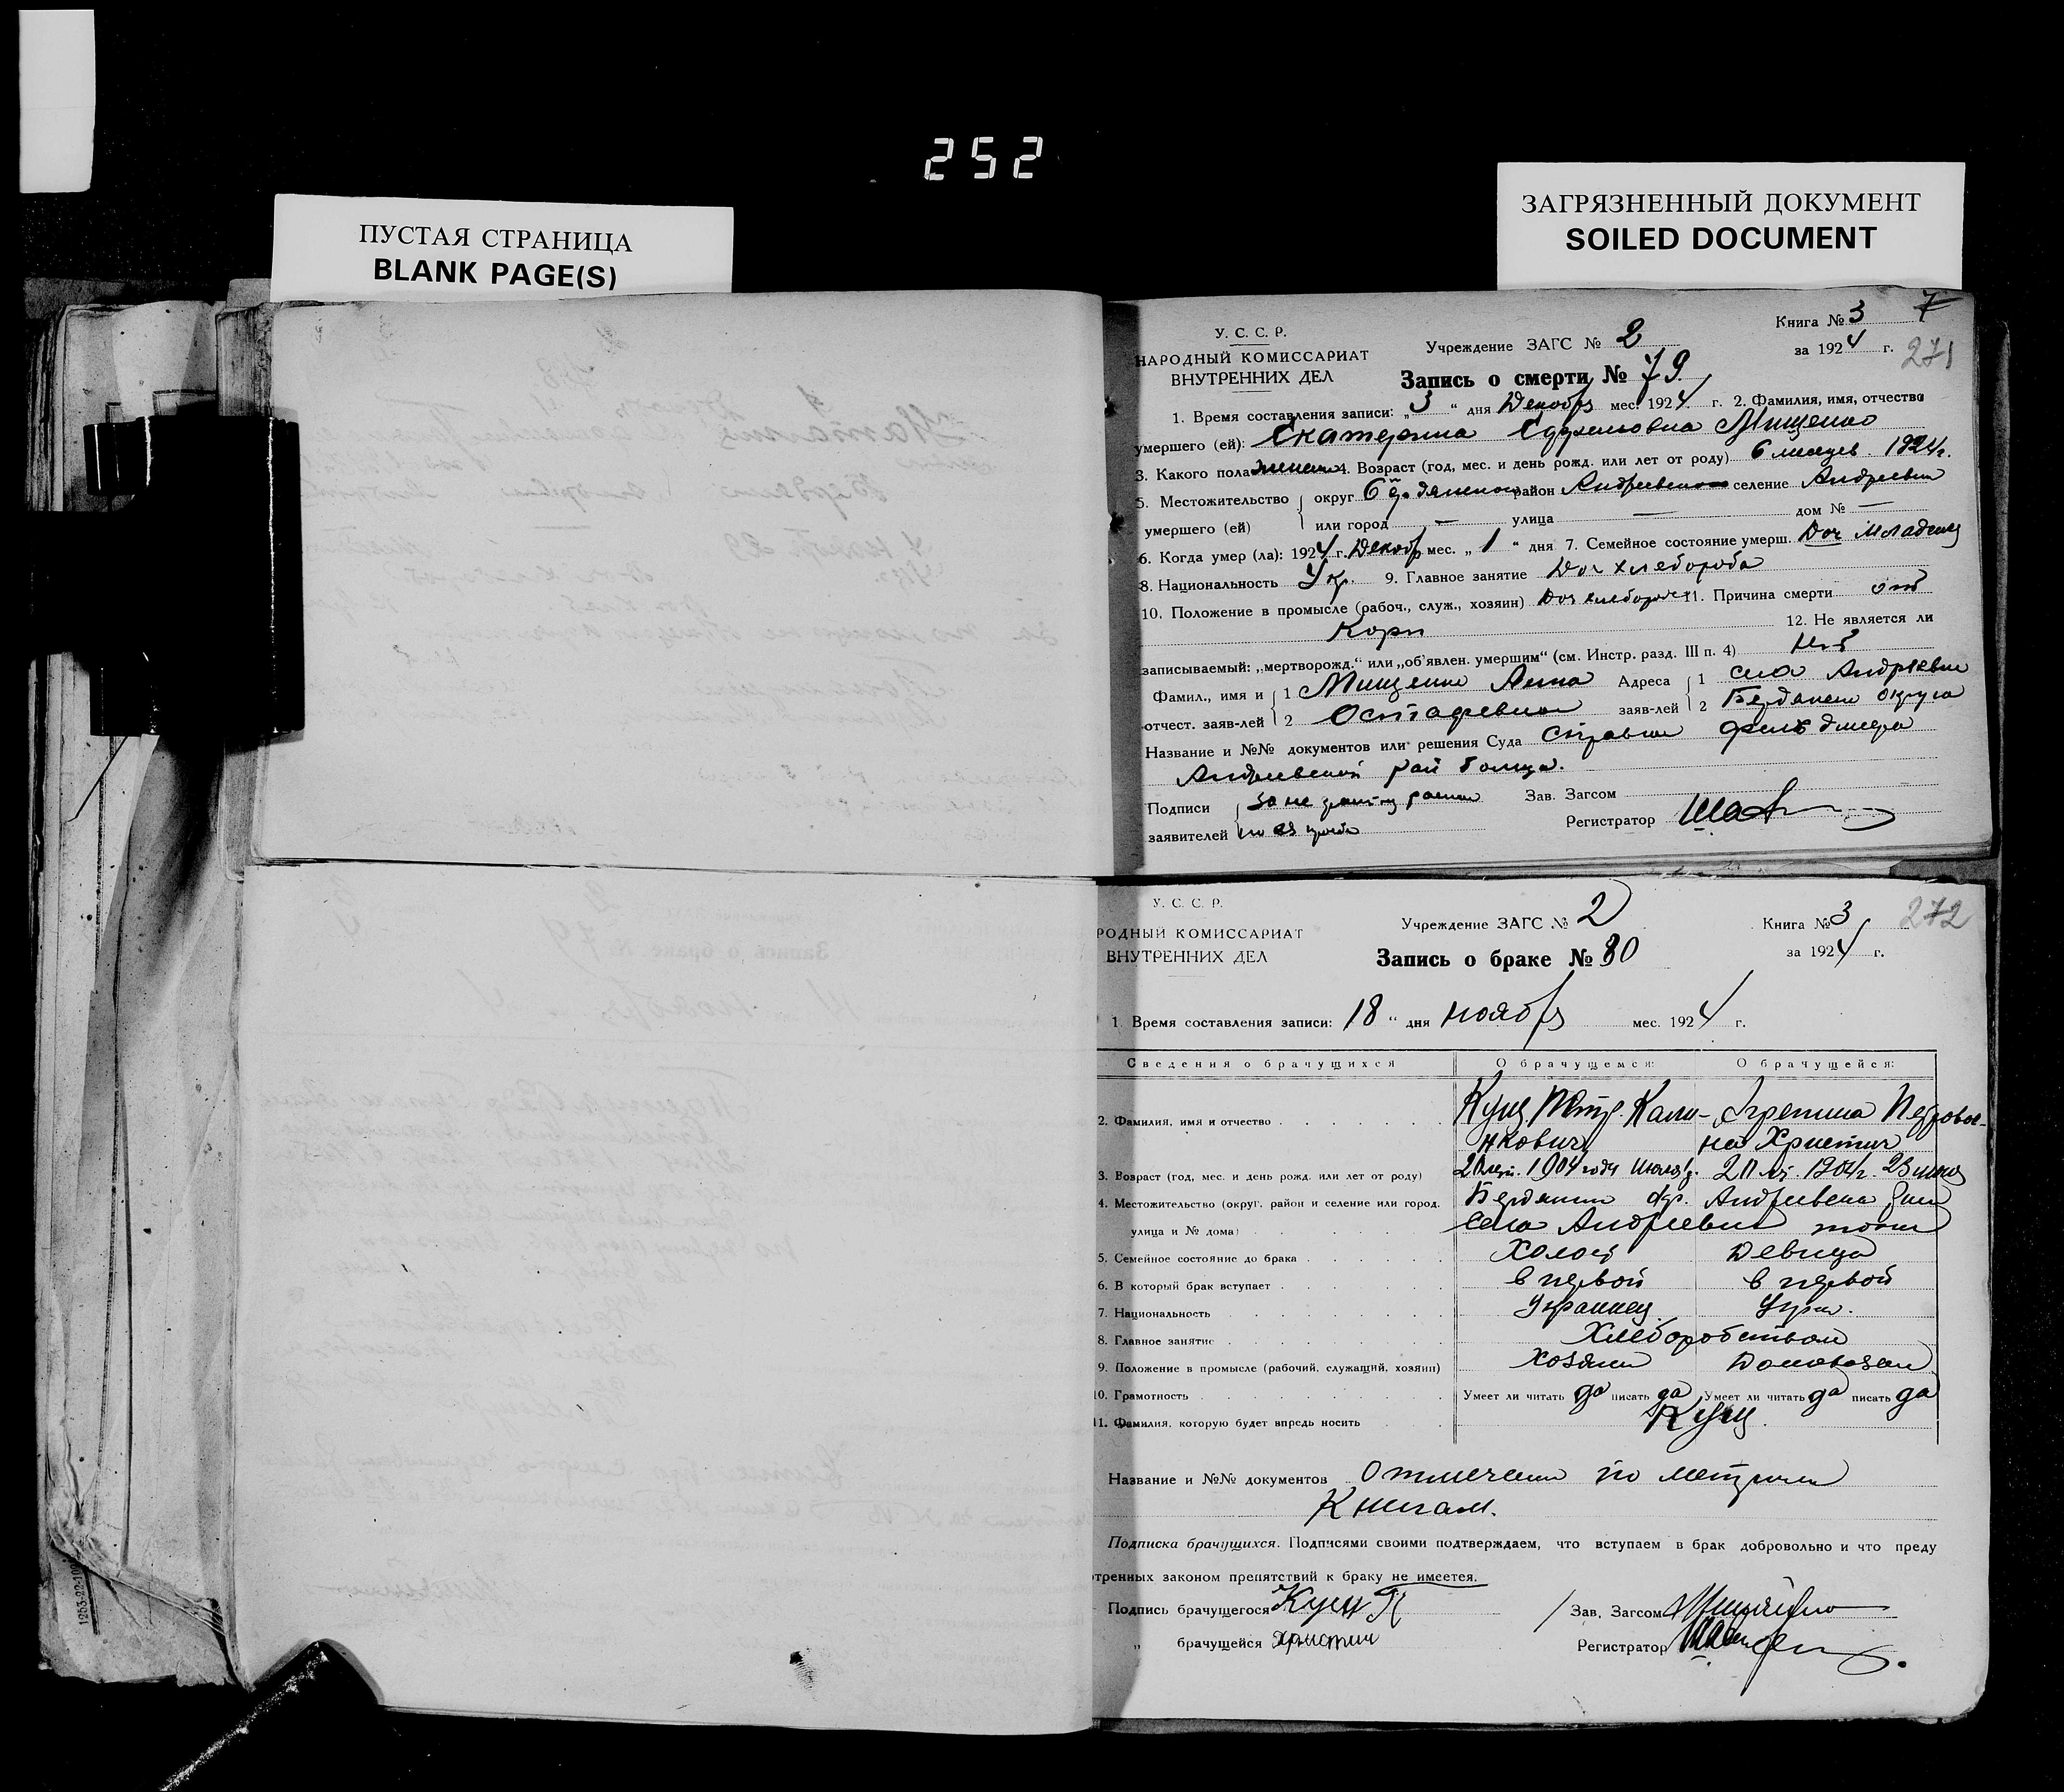 252
ПУСТАЯ СТРАНИЦА
BLANK PAGE(S)
ЗАГРЯЗНЕННЫЙ ДОКУМЕНТ
SOILED DOCUMENT
У. С. С. Р.
НАРОДНЫЙ КОМИССАРИАТ
ВНУТРЕННИХ ДЕЛ
Учреждение ЗАГС № 2
Книга № 3 7
за 1924 г. 271
Запись о смерти № 79
1. Время составления записи: „3“ дня Декабр мес. 1924 г. 2. Фамилия, имя, отчество
умершего (ей): Екатерина Мищенко
3. Какого пола женск 4. Возраст (год, мес. и день рожд. или лет от роду) 6 месяцев 1924 г.
5. Местожительство округ район Андреевско селение Андреевка
умершего (ей) или город — улица — дом № —
6. Когда умер (ла): 1924 г. Декабр мес. „1“ дня 7. Семейное состояние умерш. Доч младенец
8. Национальность Укр. 9. Главное занятие Доч хлебороба
10. Положение в промысле (рабоч., служ., хозяин) Доч хлебороб 11. Причина смерти от
Кори 12. Не является ли
записываемый: „мертворожд.“ или „об'явлен. умершим“ (см. Инстр. разд. III п. 4) Нет
Фамил., имя и 1 Мищенко Анна Адреса 1 села Андреевки
отчест. заяв-лей 2 Остафьевна заяв-лей 2 Бердянск округа
Название и №№ документов или решения Суда Справка фельдшера
Андреевской рай больца.
Подписи за не грамотну Зав. Загсом
заявителей по ея прозбе Регистратор
У. С. С. Р.
РОДНЫЙ КОМИССАРИАТ
ВНУТРЕННИХ ДЕЛ
Учреждение ЗАГС № 2
Книга № 3 272
за 1924 г.
Запись о браке № 80
1. Время составления записи: 18 “ дня ноябр мес. 1924 г.
Сведения о брачущихся О брачущемся: О брачущейся:
2. Фамилия, имя и отчество Куц Петр Кали- Агрепина Петров-
никович на Христич
3. Возраст (год, мес. и день рожд. или лет от роду) 20 лет. 1904 года 20 лет. 1904 г. 23 июня
4. Местожительство (округ, район и селение или город. Бердянск окр. Андреевска
улица и № дома) села Андреевки тоже
5. Семейное состояние до брака Холост Девица
6. В который брак вступает в первой в первой
7. Национальность Украинец Укра.
8. Главное занятие Хлеборобством
9. Положение в промысле (рабочий, служащий, хозяин) Хозяин Домохозяй
10. Грамотность Умеет ли читать да писать да Умеет ли читать да писать да
11. Фамилия, которую будет впредь носить Куц
Название и №№ документов Отмечены по метрич
Книгам.
Подписка брачущихся. Подписями своими подтверждаем, что вступаем в брак добровольно и что преду
отренных законом препятствий к браку не имеется.
Подпись брачущегося Куц П Зав. Загсом
„ брачущейся христич Регистратор
1253-22-10